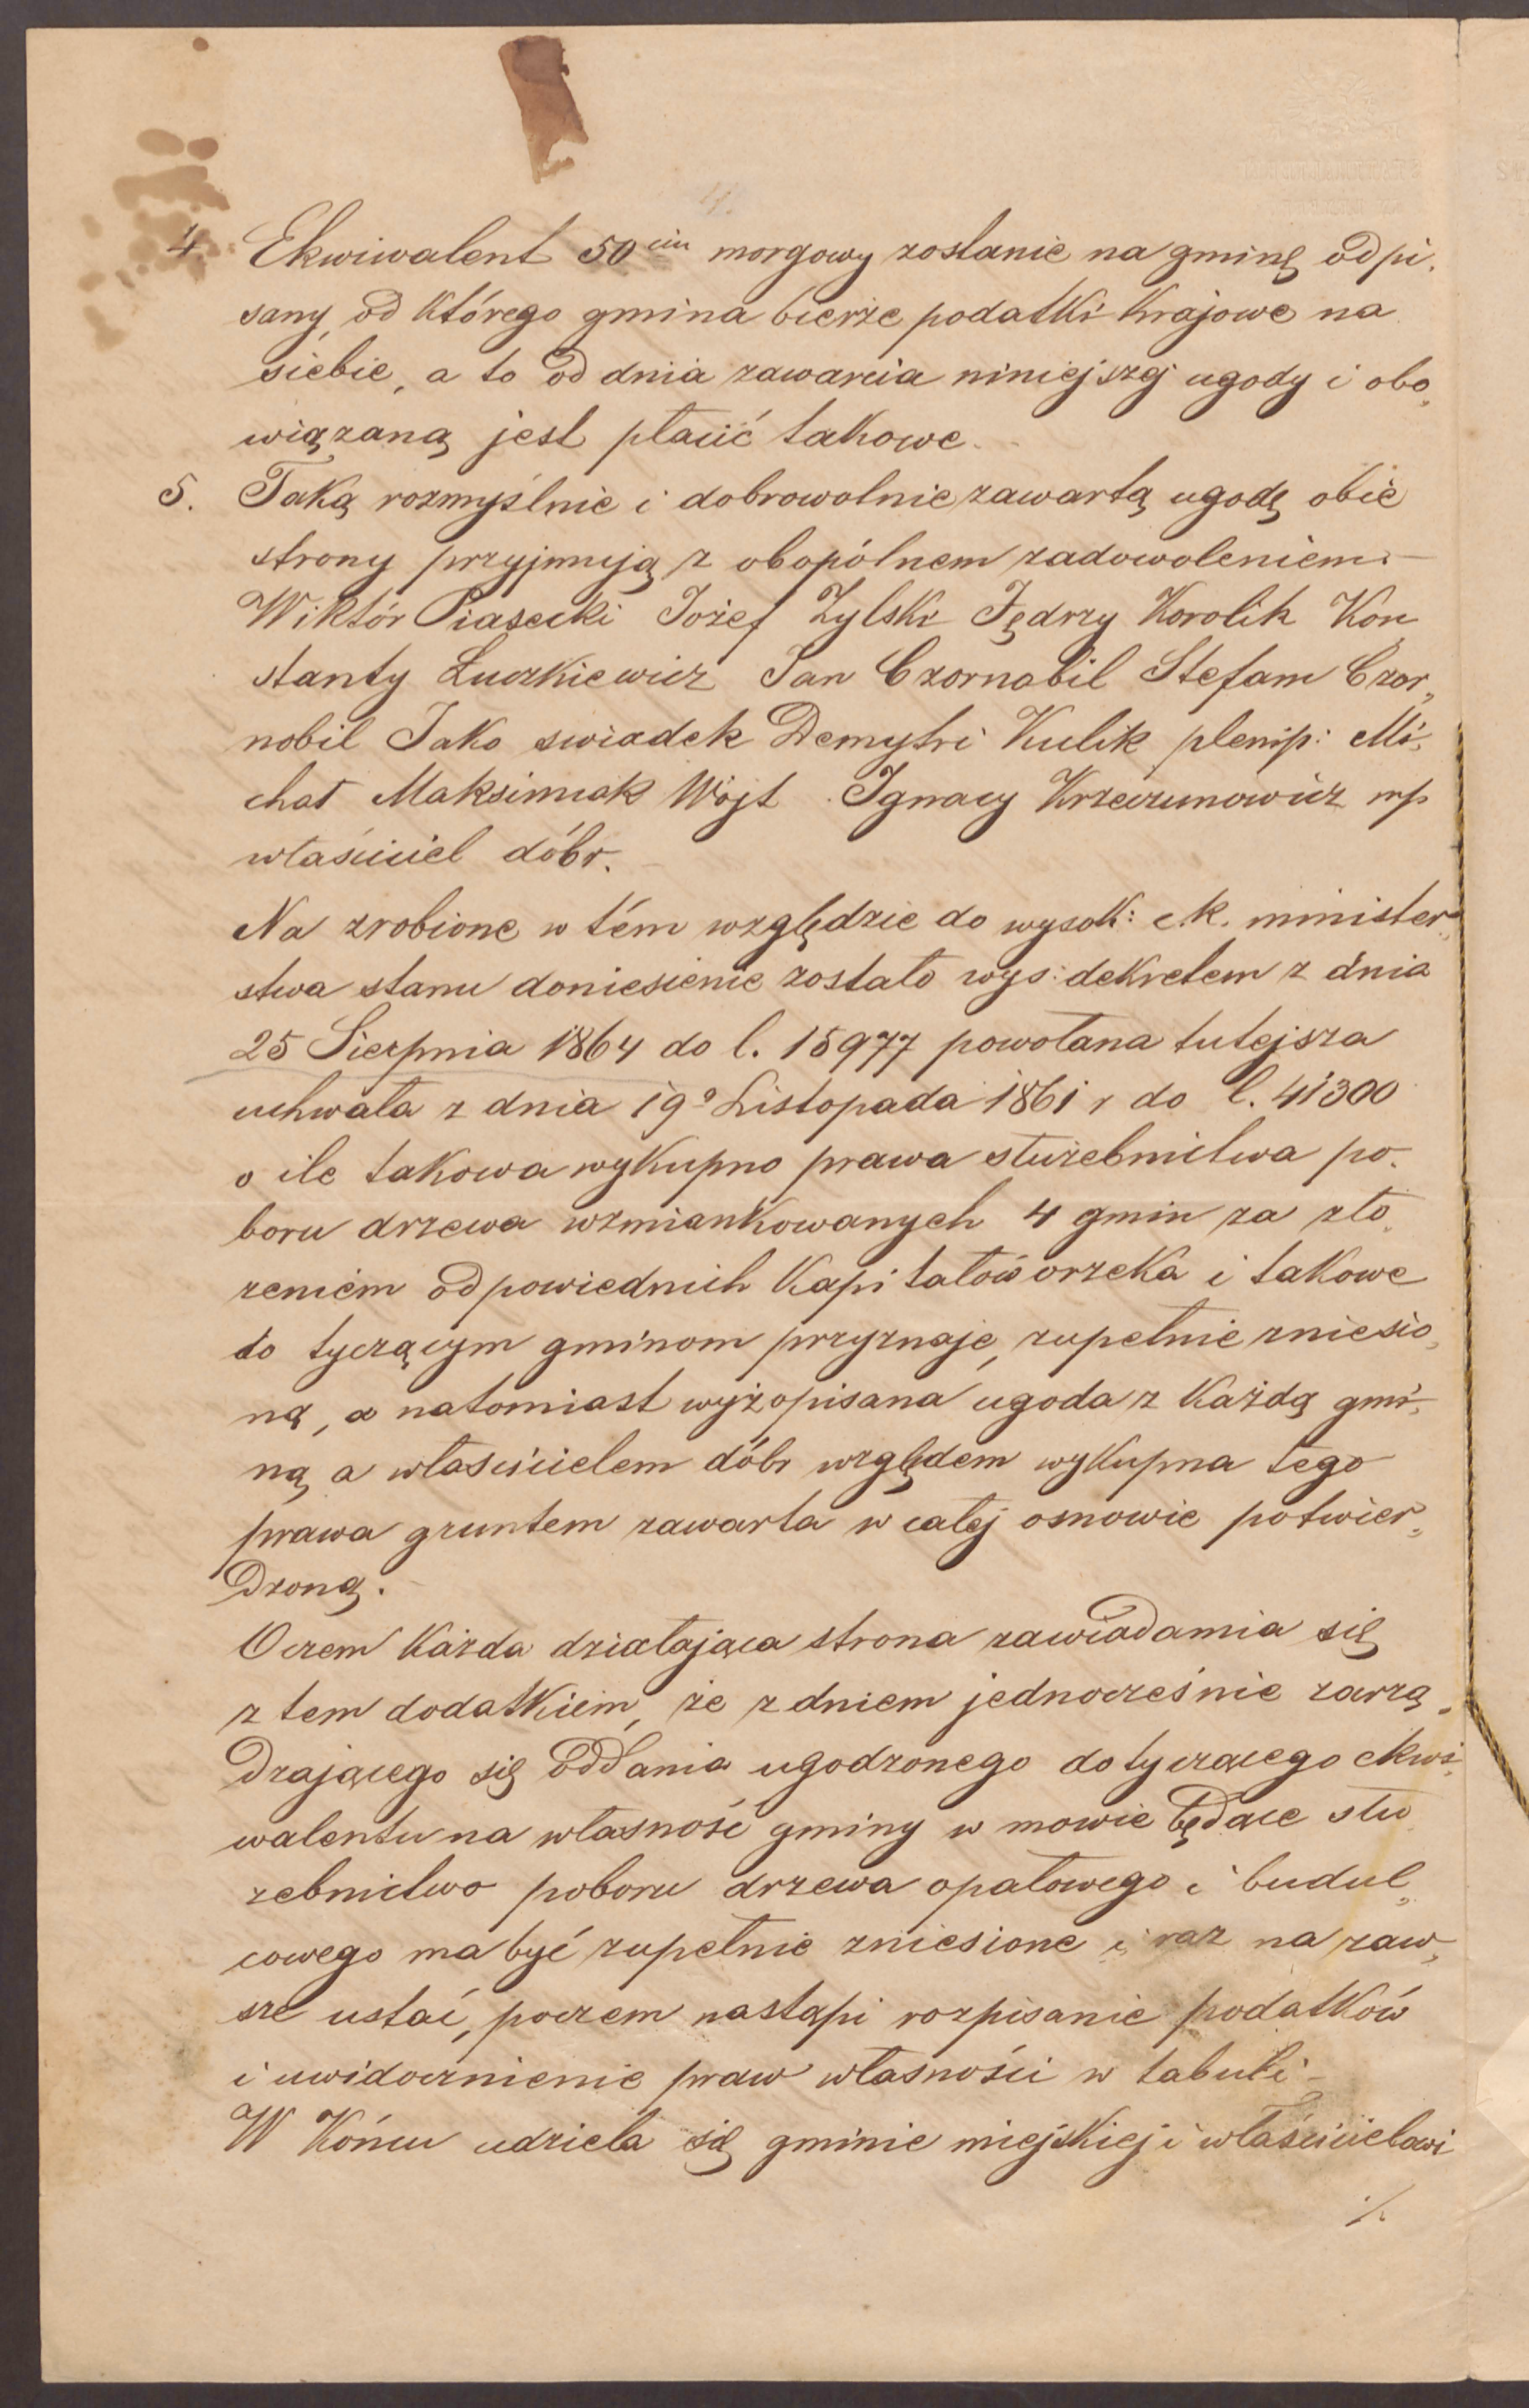 4. Ekwiwalent 50cin morgowy zostanie na gminę odpi„
sany, od którego gmina bierze podatki krajowe na
siebie, a to od dnia zawarcia niniejszej ugody i obo„
wiązaną jest płacić takowe.
5. Taką rozmyślnie i dobrowolnie zawartą ugodę obie
strony przyjmują z obopólnem zadowoleniem. —
Wiktór Piasecki Józef Zylski Jędrzy Korolik Kon
stanty Łuczkiewicz Jan Czornobil Stefam Czor„
nobil Jako swiadek Demytri Kulik plenip: Mi„
chał Maksimiak Wójt Ignacy Krzeczunowicz mp
właściciel dóbr. —
Na zrobione w tém względzie do wysok: c.k. minister„
stwa stanu doniesienie zostało wys: dekretem z dnia
25 Sierpnia 1864 do l. 15977 powołana tutejsza
uchwała z dnia 19o Listopada 1861 r do l. 41300
o ile takowa wykupno prawa służebnictwa po„
boru drzewa wzmiankowanych 4 gmin za zło„
żeniem odpowiednich kapitałów orzeka i takowe
to tyczącym gminom przyznaje, zupełnie zniesio„
ną, a natomiast wyżopisana ugoda z każdą gmi„
ną a właścicielem dóbr względem wykupna tego
prawa gruntem zawarta w całej osnowie potwier„
dzoną. —
O czem każda działająca strona zawiadamia się
z tem dodatkiem, że z dniem jednocześnie zarzą„
dzającego się oddania ugodzonego dotyczącego ekwi„
walentu na własność gminy w mowie będące słu„
żebnictwo poboru drzewa opałowego i budul„
cowego ma być zupełnie zniesione i raz na zaw„
sze ustać, poczem nastąpi rozpisanie podatków
i uwidocznienie praw własności w tabuli —
W końcu udziela się gminie miejskiej i właścicielowi
./.